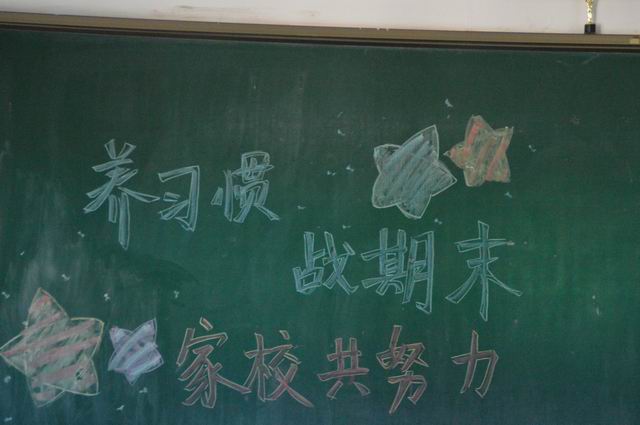 养习惯
战期末
家校共努力